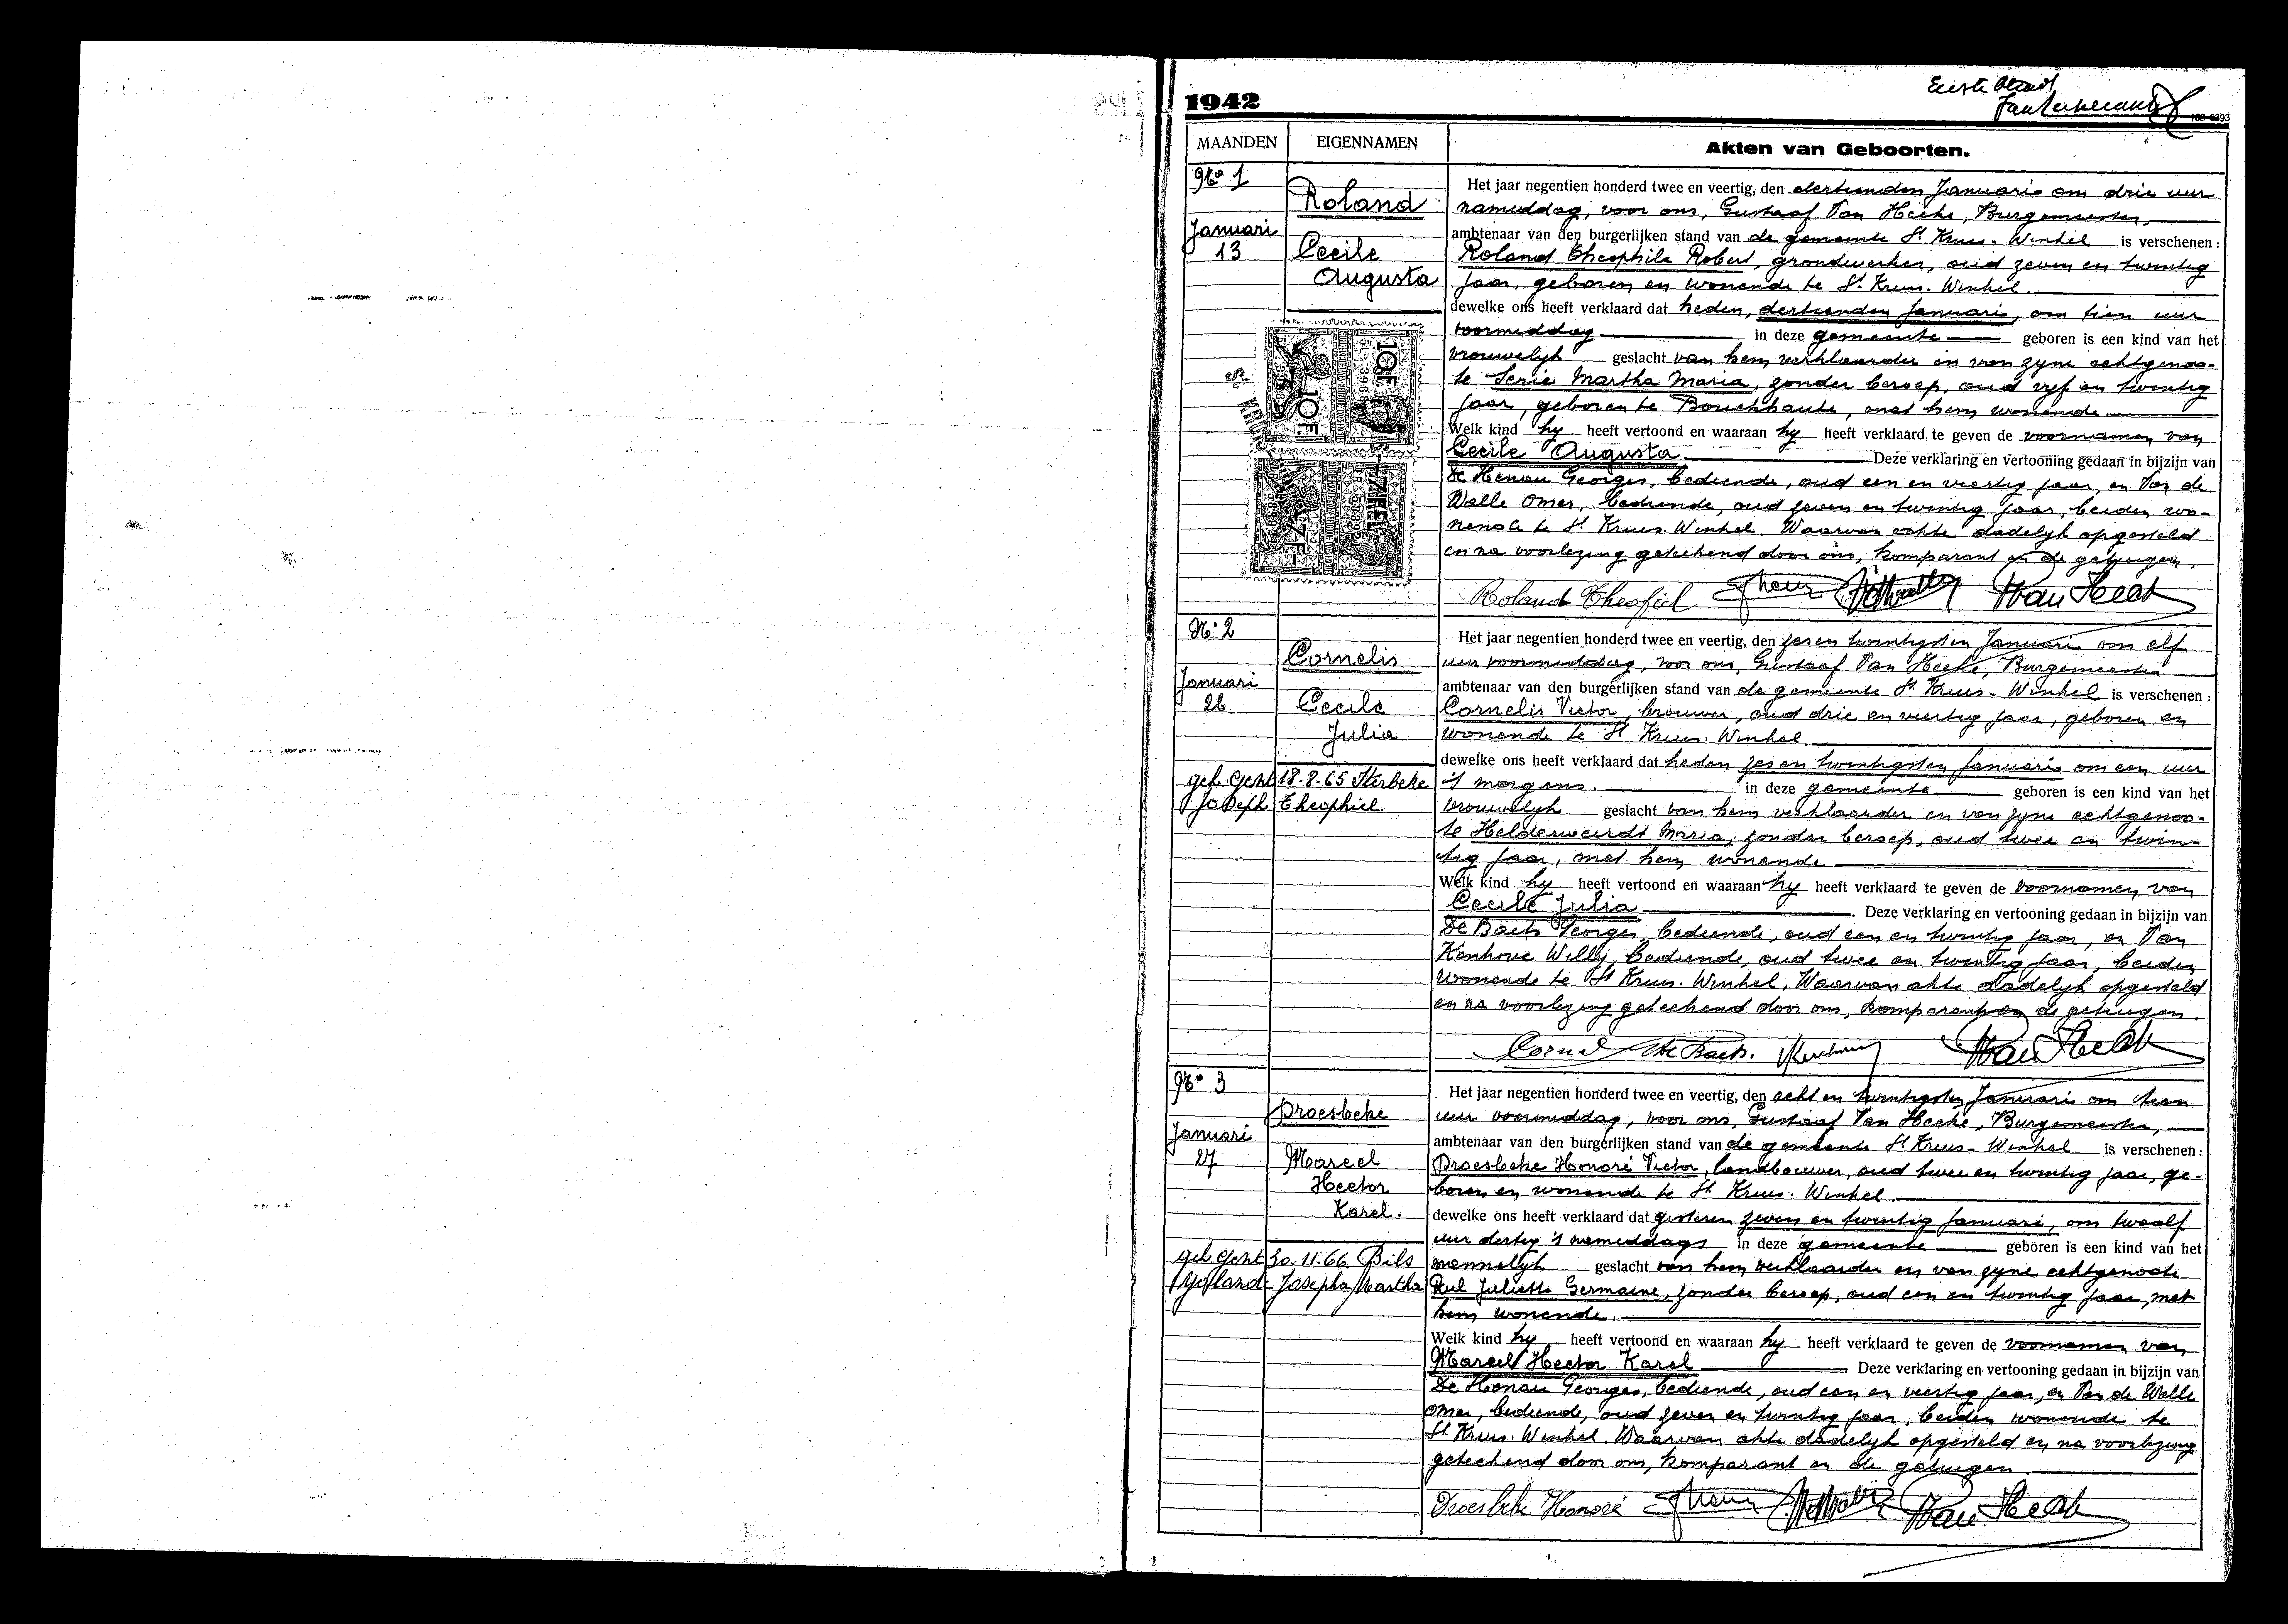 1942
Eerste blad
MAANDEN
EIGENNAMEN
Akten van Geboorten.
No 1
Januari
13
Roland
Cecile
Augusta
Het jaar negentien honderd twee en veertig, den dertienden Januari om drie uur
namiddag, voor ons, Gustaaf Van Hecke, Burgemeester,
ambtenaar van den burgerlijken stand van de gemeente St Kruis-Winkel is verschenen:
Roland Theophile Robert, grondwerker, oud zeven en twintig
jaar, geboren en wonende te St. Kruis-Winkel.
dewelke ons heeft verklaard dat heden, dertienden Januari, om tien uur
voormiddag in deze gemeente geboren is een kind van het
vrouwelyk geslacht van hem verklaarder en van zyne echtgenoo-
te Serie Martha Maria, zonder beroep, oud vyf en twintig
jaar, geboren te Bouchhaute, met hem wonende.
Welk kind hy heeft vertoond en waaraan hy heeft verklaard te geven de voornamen van
Cecile Augusta Deze verklaring en vertooning gedaan in bijzijn van
De Henau Georges, bediende, oud een en veertig jaar, en Van de
Walle Omer, bediende, oud zeven en twintig jaar, beiden wo-
nende te St. Kruis-Winkel. Waarvan akte dadelyk opgesteld
en na voorlezing geteekend door ons, komparant en de getuigen.
10F.
10F.
7F.
Roland Theofiel Van Heck
No 2
Januari
26
Cornelis
Cecile
Julia
geh. Gent 18-8-65 Sterbeke
Joseph Theophiel.
Het jaar negentien honderd twee en veertig, den zes en twintigsten Januari om elf
uur voormiddag, voor ons, Gustaaf Van Hecke, Burgemeester
ambtenaar van den burgerlijken stand van de gemeente St. Kruis-Winkel is verschenen:
Cornelis Victor, brouwer, oud drie en veertig jaar, geboren en
wonende te St Kruis-Winkel.
dewelke ons heeft verklaard dat heden zes en twintigsten Januari om een uur
's morgens. in deze gemeente geboren is een kind van het
vrouwelyk geslacht van hem verklaarder en van zyne echtgenoo-
te Helderweirdt Maria, zonder beroep, oud twee en twin-
tig jaar, met hem wonende
Welk kind hy heeft vertoond en waaraan hy heeft verklaard te geven de voornamen van
Cecile Julia. Deze verklaring en vertooning gedaan in bijzijn van
De Baets Georges, bediende, oud een en twintig jaar, en Van
Kenhove Willy, bediende, oud twee en twintig jaar, beiden
wonende te St Kruis-Winkel, Waarvan akte dadelyk opgesteld
en na voorlezing geteekend door ons, komparant en de getuigen.
De Baets. Van Heck
No 3
Januari
27
Droesbeke
Marcel
Hector
Karel.
geh Gent 30.11.66 Bils
Yolande Josepha Martha
Het jaar negentien honderd twee en veertig, den acht en twintigsten Januari om tien
uur voormiddag, voor ons, Gustaaf Van Hecke, Burgemeester,
ambtenaar van den burgerlijken stand van de gemeente St. Kruis-Winkel is verschenen:
Droesbeke Honoré Victor, landbouwer, oud twee en twintig jaar, ge-
boren en wonende te St. Kruis-Winkel.
dewelke ons heeft verklaard dat gisteren zeven en twintig Januari, om twaalf
uur dertig 's namiddags in deze gemeente geboren is een kind van het
mannelyk geslacht van hem verklaarder en van zyne echtgenoote
Juliette Germaine, zonder beroep, oud een en twintig jaar, met
hem wonende.
Welk kind hy heeft vertoond en waaraan hy heeft verklaard te geven de voornamen van
Marcel Hector Karel Deze verklaring en vertooning gedaan in bijzijn van
De Henau Georges, bediende, oud een en veertig jaar, en Van de Walle
Omer, bediende, oud zeven en twintig jaar, beiden wonende te
St. Kruis-Winkel. Waarvan akte dadelyk opgesteld en na voorlezing
geteekend door ons, komparant en de getuigen.
Droesbeke Honoré Van Heck